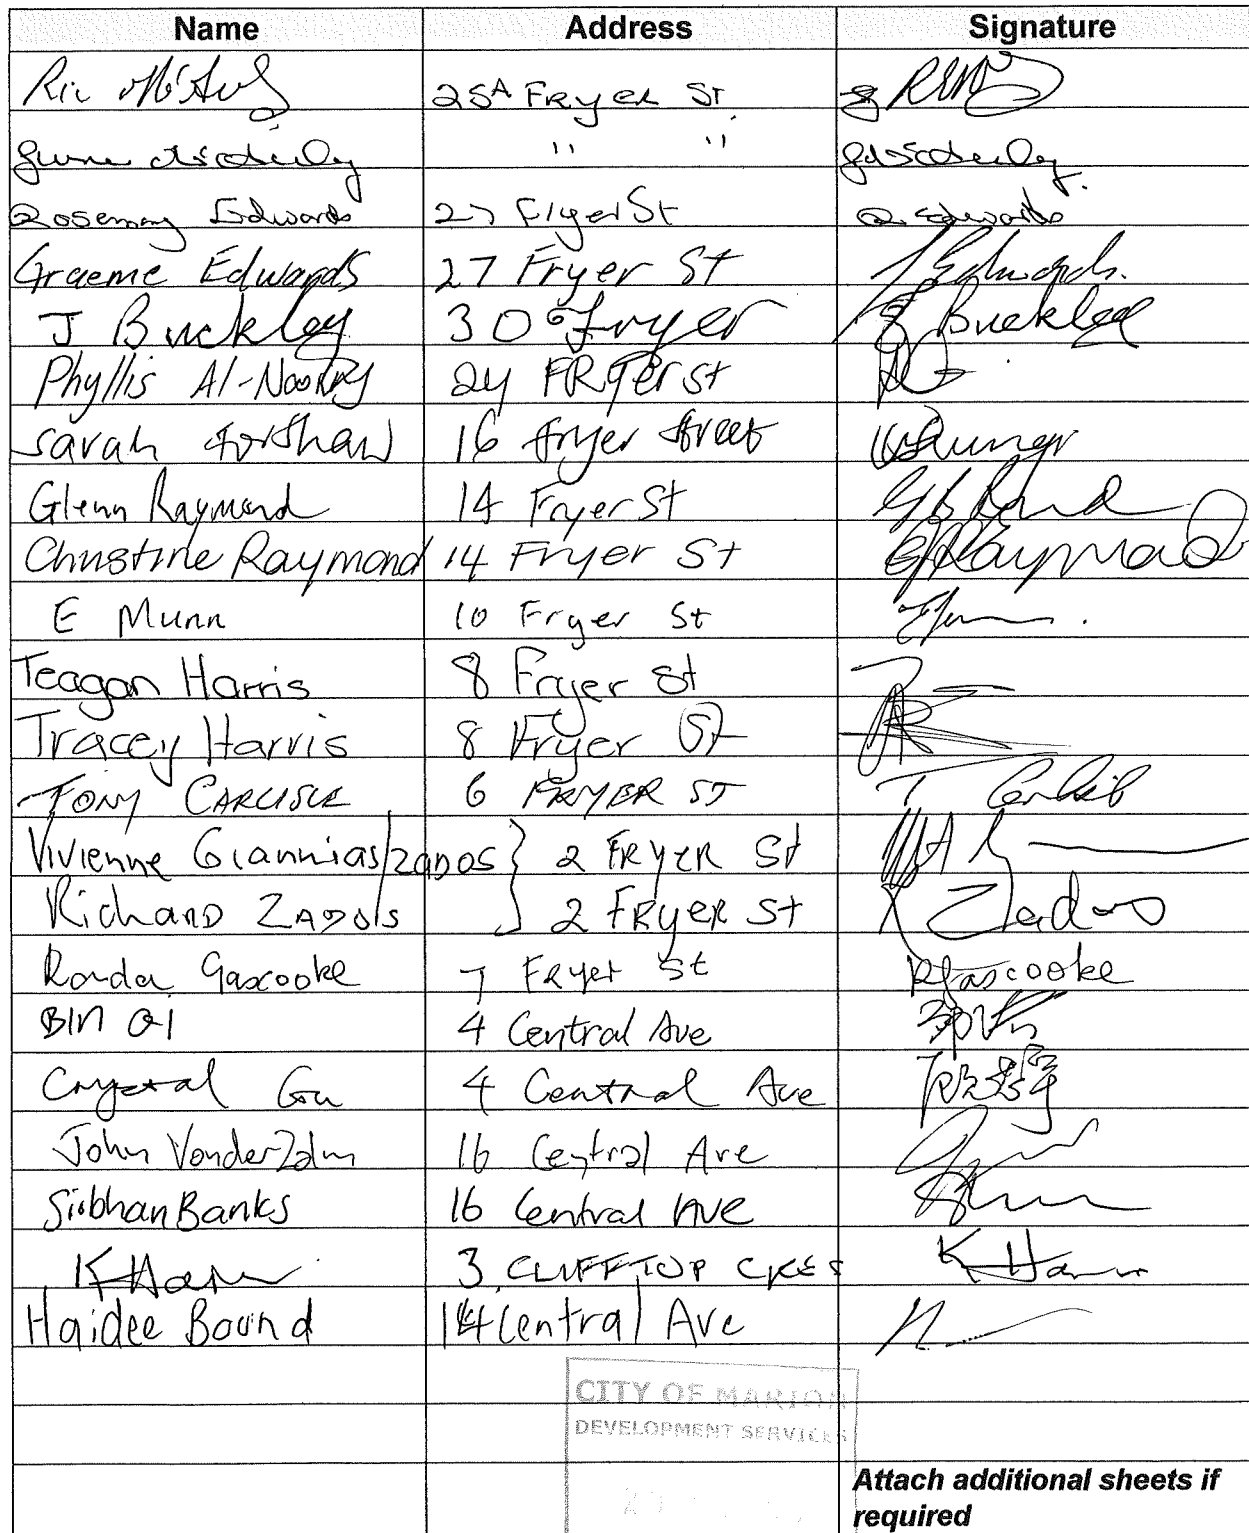 Name Address Signature
Ric 25A Fryer St
" "
Rosemary Edwards 27 Fryer St R Edwards
Graeme Edwards 27 Fryer St Edwards.
J Buckley 30 Fryer J Buckley
Phyllis Al-Noory 24 FRYer st
Sarah Forshaw 16 fryer street
Glenn Raymond 14 Fryer St
Christine Raymond 14 Fryer St CJRaymond
E Munn 10 Fryer St
Teagan Harris 8 Fryer St
Tracey Harris 8 Fryer St
TONY CARLISLE 6 FRYER ST T Carlisle
Vivienne Giannias/ZADOS } 2 FRYER St
Richard ZADOIS 2 FRYER St Zados
Ronda Gascooke 7 FRyer St RGascooke
BIN QI 4 Central Ave
Crystal Gu 4 Central Ave
John VanderZalm 16 Central Ave
Siobhan Banks 16 Central AVE
K 3 CLIFFTOP CRES K
Haidee Bound 14 Central Ave
CITY OF MARION
DEVELOPMENT SERVICES
Attach additional sheets if
required